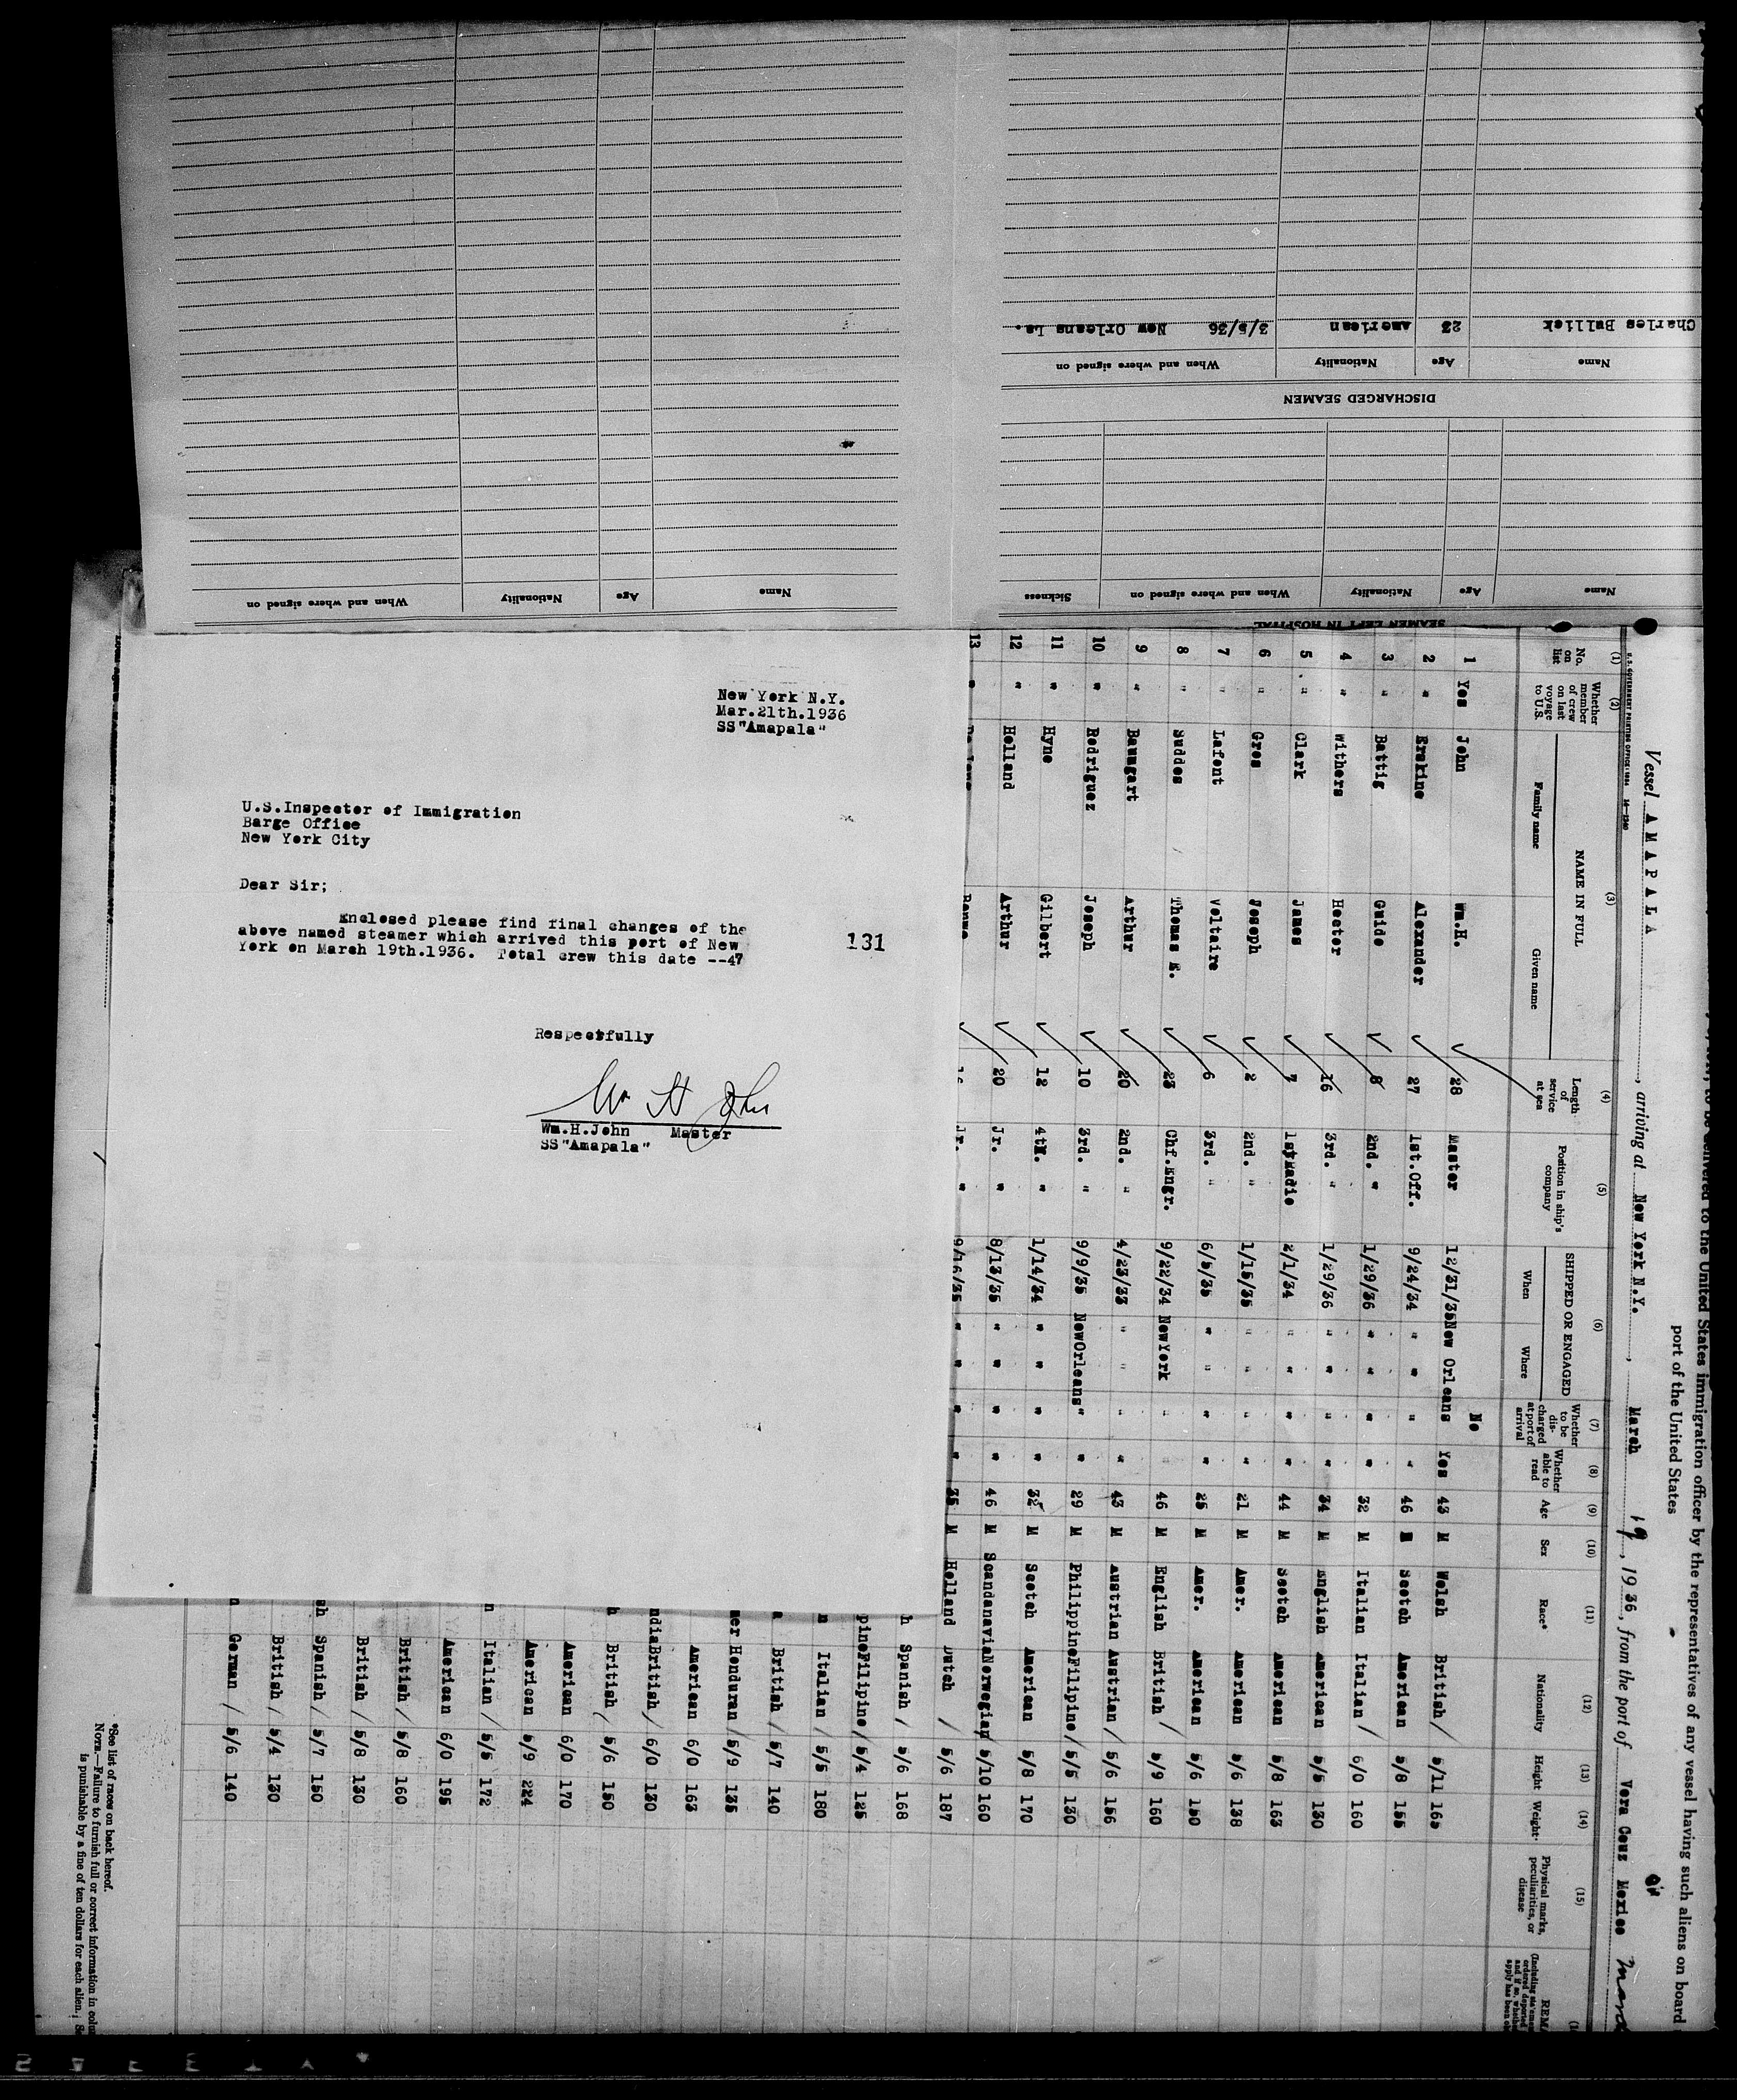 New York N.Y.
Mar.21th.1936
SS"Amapala"
U.S.Inspector of Immigration
Barge Office
New York City
Dear Sir;
Enclosed please find final changes of the
above named steamer which arrived this port of New
York on March 19th.1936. Total crew this date --47
131
Respectfully
Wm H John
Wm.H.John Master
SS"Amapala"
SEAMEN LEFT IN HOSPITAL
Name Age Nationality When and where signed on Sickness
Name Age Nationality When and where signed on
DISCHARGED SEAMEN
Name Age Nationality When and where signed on
Charles Bullick 23 American 3/5/36 New Orleans La.
to be delivered to the United States immigration officer by the representatives of any vessel having such aliens on board
port of the United States
Vessel AMAPALA, arriving at New York N.Y., March 19, 1936, from the port of Vera Cruz Mexico
U. S. GOVERNMENT PRINTING OFFICE
(1) (2) (3) (4) (5) (6) (7) (8) (9) (10) (11) (12) (13) (14) (15)
No. on list
Whether member of crew on last voyage to U.S.
NAME IN FULL
Family name
Given name
Length of service at sea
Position in ship's company
SHIPPED OR ENGAGED
When
Where
Whether to be discharged at port of arrival
Whether able to read
Age
Sex
Race*
Nationality
Height
Weight
Physical marks, peculiarities, or disease
No
1 Yes John Wm.H. 28 Master 12/31/35 New Orleans Yes 43 M Welsh British / 5/11 165
2 " Erskine Alexander 27 1st.Off. 9/24/34 " " " " 46 M Scotch American 5/8 155
3 " Battig Guido 8 2nd. " 1/29/36 " " " " 32 M Italian Italian / 6/0 160
4 " Withers Hector 16 3rd. " 1/29/36 " " " " 34 M English American 5/5 130
5 " Clark James 7 1stRadio 2/1/34 " " " " 44 M Scotch American 5/8 163
6 " Gros Joseph 2 2nd. " 1/15/35 " " " " 21 M Amer. American 5/6 138
7 " Lafont Voltaire 6 3rd. " 6/5/35 " " " " 25 M Amer. American 5/6 150
8 " Suddes Thomas E. 23 Chf.Engr. 9/22/34 NewYork " " 46 M English British / 5/9 160
9 " Baumgart Arthur 20 2nd. " 4/23/33 " " " " 43 M Austrian Austrian / 5/6 156
10 " Rodriguez Joseph 10 3rd. " 9/9/35 NewOrleans" " 29 M Philippine Filipino / 5/5 130
11 " Hyne Gilbert 12 4th. " 1/14/34 " " " " 32 M Scotch American 5/8 170
12 " Holland Arthur 20 Jr. " 8/13/35 " " " " 46 M Scandanavian Norwegian 5/10 160
13 " Jr. " 9/16/35 " " " " 35 M Holland Dutch / 5/6 187
h Spanish / 5/6 168
pine Filipino / 5/4 125
n Italian / 5/5 180
a British / 5/7 140
mer Honduran / 5/9 135
American 6/0 163
ndia British / 6/0 130
h British / 5/6 150
American 6/0 170
American 5/9 224
n Italian / 5/5 172
American 6/0 195
British / 5/8 160
British / 5/8 130
sh Spanish / 5/7 150
British / 5/4 130
n German / 5/6 140
*See list of races on back hereof.
NOTE.—Failure to furnish full or correct information in colu
is punishable by a fine of ten dollars for each alien.